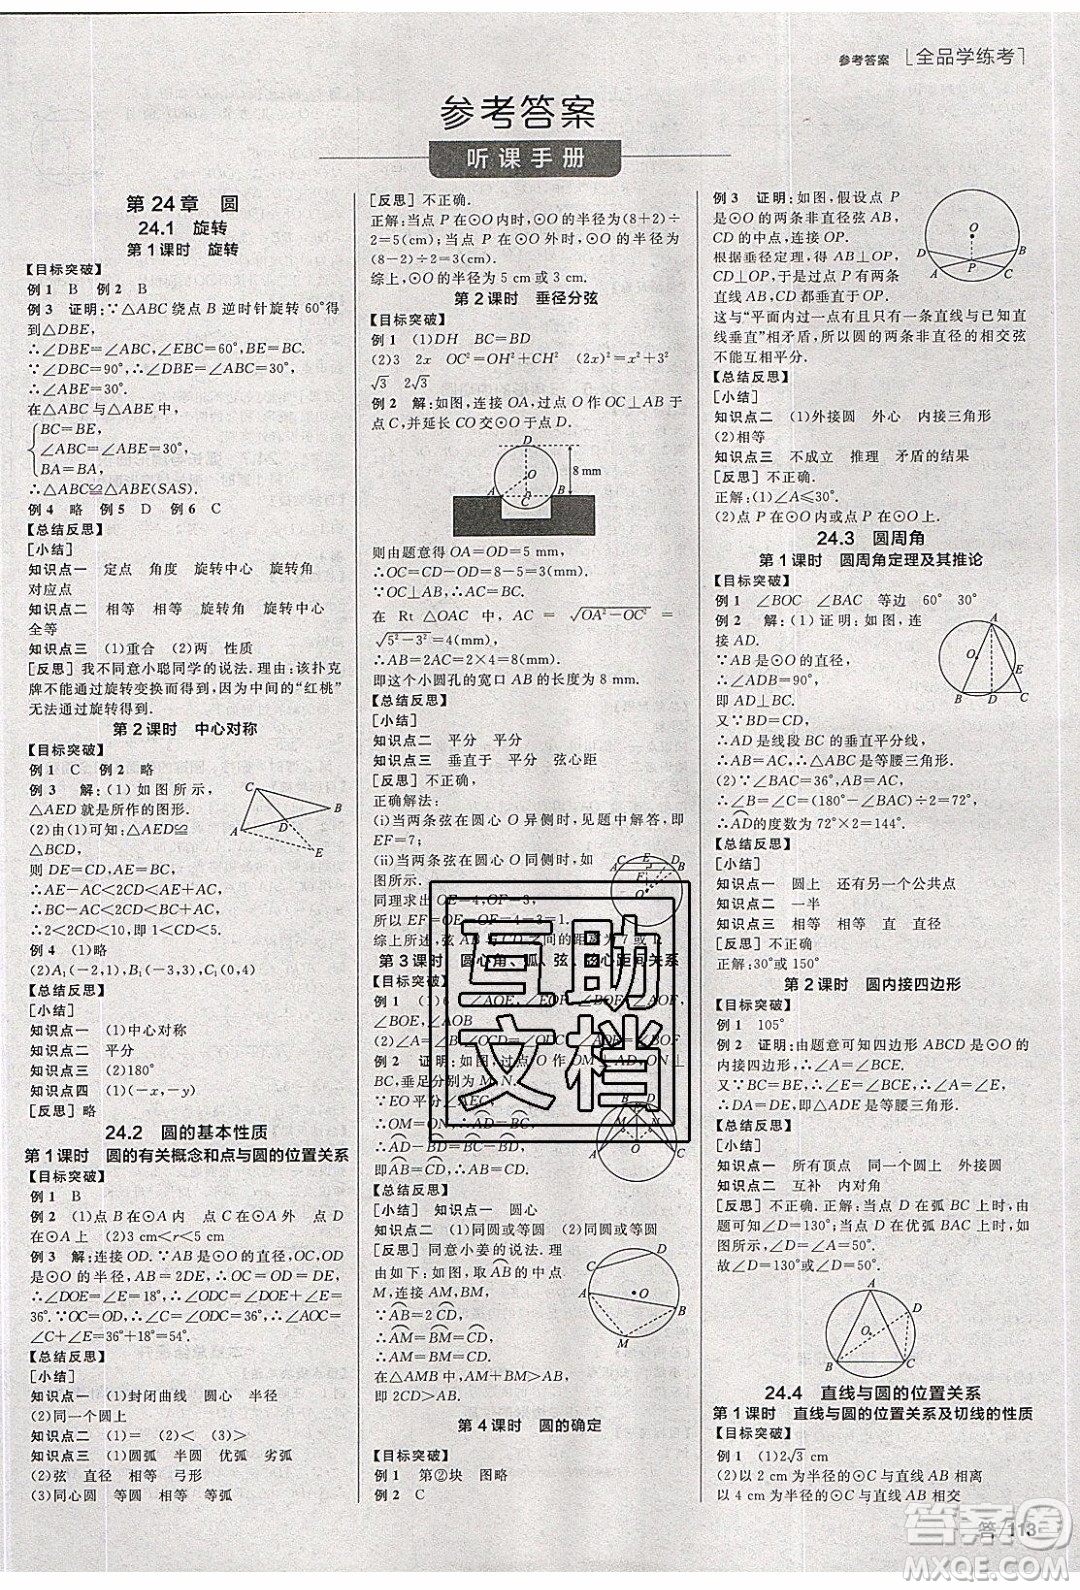 参考答案 [全品学练考]
参考答案
听课手册
第24章 圆
24.1 旋转
第1课时 旋转
【目标突破】
例1 B 例2 B
例3 证明:∵△ABC 绕点 B 逆时针旋转 60°得
到△DBE,
∴∠DBE=∠ABC,∠EBC=60°,BE=BC.
∵∠DBC=90°,∴∠DBE=∠CBE=30°,
∴∠ABE=30°.
在△ABC与△ABE中,
BC=BE,
∠ABC=∠ABE=30°,
BA=BA,
∴△ABC≌△ABE(SAS).
例4 略 例5 D 例6 C
【总结反思】
[小结]
知识点一 定点 角度 旋转中心 旋转角
对应点
知识点二 相等 相等 旋转角 旋转中心
全等
知识点三 (1)重合 (2)两 性质
[反思] 我不同意小聪同学的说法.理由:该扑克
牌不能通过旋转变换而得到,因为中间的“红桃”
无法通过旋转得到.
第2课时 中心对称
【目标突破】
例1 C 例2 略
例3 解:(1)如图所示,
△AED就是所作的图形.
(2)由(1)可知:△AED≌
△BCD,
则 DE=CD,AE=BC,
∴AE-AC<2CD<AE+AC,
即BC-AC<2CD<BC+AC,
∴2<2CD<10,即1<CD<5.
例4 (1)略
(2)A₁(-2,1),B(-3,-1),C(0,-4)
【总结反思】
[小结]
知识点一 (1)中心对称
知识点二 平分
知识点三 (2)180°
知识点四 (1)(-x,-y)
[反思] 略
24.2 圆的基本性质
第1课时 圆的有关概念和点与圆的位置关系
【目标突破】
例1 B
例2 (1)点 B 在⊙A 内 点 C 在⊙A 外 点 D
在⊙A上 (2)3 cm<r<5 cm
例3 解:连接 OD. ∵AB 是⊙O 的直径,OC,OD
是⊙O 的半径,AB=2DE,∴OD=DE,
∴∠DOE=∠E=18°,∴∠ODC=∠DOE+∠E=
36°.∵OC=OD,∴∠C=∠ODC=36°,∴∠AOC=
∠C+∠E=36°+18°=54°.
【总结反思】
[小结]
知识点一 (1)封闭曲线 圆心 半径
(2)同一个圆上
知识点二 (1)= (2)< (3)>
知识点三 (1)圆弧 半圆 优弧 劣弧
(2)弦 直径 相等 弓形
(3)同心圆 等圆 相等 等弧
[反思] 不正确.
正解:当点 P 在⊙O内时,⊙O 的半径为(8+2)÷
2=5(cm);当点 P 在⊙O 外时,⊙O 的半径为
(8-2)÷2=3(cm).
综上,⊙O 的半径为 5 cm 或 3 cm.
第2课时 垂径分弦
【目标突破】
例1 (1)DH BC=BD
(2)3 2x OC²=OH²+CH² (2x)²=x²+3²
√3 2√3
例2 解:如图,连接 OA,过点 O 作 OC⊥AB 于
点 C,并延长 CO 交⊙O 于点 D.
D
O
8 mm
A
B
C
则由题意得 OA=OD=5 mm,
∴OC=CD-OD=8-5=3(mm).
∵OC⊥AB,∴AC=BC.
在 Rt △OAC 中,AC=√OA²-OC²=
√5²-3²=4(mm),
∴AB=2AC=2×4=8(mm),
即这个小圆孔的宽口 AB 的长度为 8 mm.
【总结反思】
[小结]
知识点二 平分 平分
知识点三 垂直于 平分 弦心距
[反思] 不正确.
正确解法:
(i)当两条弦在圆心 O 异侧时,见题中解答,即
EF=7;
(ii)当两条弦在圆心 O 同侧时,如
图所示.
同理求出 OE=4,OF=3,
所以 EF=OE-OF=1.
综上所述,弦 AB 与CD之间的距离为 7 或 1.
第3课时 圆心角、弧、弦、弦心距间关系
【目标突破】
例2 证明:如图,过点 O 作 OM⊥AD,ON⊥
∵EO平分∠AEC,
∴OM=ON,
∴AB=CD,
∴AB-BD=CD-BD,
即AD=BC.
【总结反思】
[小结] 知识点一 圆心
知识点二 (1)同圆或等圆 (2)同圆或等圆
[反思] 同意小姜的说法.理
由如下:如图,取AB的中点
M,连接AM,BM,
∵AB=2 CD,
∴AM=BM=CD,
∴AM=BM=CD.
在△ABM中,AM+BM>AB,
即 2CD>AB.
第4课时 圆的确定
【目标突破】
例1 第②块 图略
例2 C
例3 证明:如图,假设点 P 是
⊙O 的两条非直径弦 AB,
CD 的中点,连接 OP.
根据垂径定理,得 AB⊥OP,
CD⊥OP,于是过点 P 有两条
直线 AB,CD 都与 OP 垂直.
这与“平面内过一点有且只有一条直线与已知
直线垂直”相矛盾,所以圆的两条非直径的相交弦
不能互相平分.
【总结反思】
[小结]
知识点二 (1)外接圆 外心 内接三角形
(2)相等
知识点三 不成立 推理 矛盾的结果
[反思] 不正确.
正解:(1)∠A≤30°.
(2)点 P 在⊙O上或点 P 在⊙O外.
24.3 圆周角
第1课时 圆周角定理及其推论
【目标突破】
例1 ∠BOC ∠BAC 等边 60° 30°
例2 解:(1)证明:如图,连
接 AD.
∵AB 是⊙O 的直径,
∴∠ADB=90°,
即 AD⊥BC.
又∵BD=CD,
∴AD 是线段 BC 的垂直平分线,
∴AB=AC,∴△ABC 是等腰三角形.
(2)∵∠BAC=36°,AB=AC,
∴∠B=∠C=(180°-∠BAC)÷2=72°,
∴AD的度数为 72°×2=144°.
【总结反思】
[小结]
知识点一 圆上 还有另一个公共点
知识点二 一半
知识点三 相等 相等 直 直径
[反思] 不正确.
正解:30°或 150°
第2课时 圆内接四边形
【目标突破】
例1 105°
例2 证明:由题意可知四边形 ABCD 是⊙O 的
内接四边形,∴∠DAE=∠C.
又∵∠C=∠DEA,∴∠DAE=∠DEA,
∴DA=DE,即△ADE是等腰三角形.
【总结反思】
[小结]
知识点一 所有顶点 同一个圆 外接圆
知识点二 互补 内对角
[反思] 不正确.正解:当点 D 在弧 BC 上时,由
题可知∠D=130°;当点 D 在优弧 BAC 上时,
∠D=50°.
故∠D=130°或∠D=50°.
A
D
O
B
C
24.4 直线与圆的位置关系
第1课时 直线与圆的位置关系及切线的性质
【目标突破】
例1 (1)2√3 cm
(2)以 2 cm 为半径的⊙C与直线 AB 相离
以 4 cm 为半径的⊙C与直线 AB 相交
互助
文档
答案圈
MXQE.COM
答 113